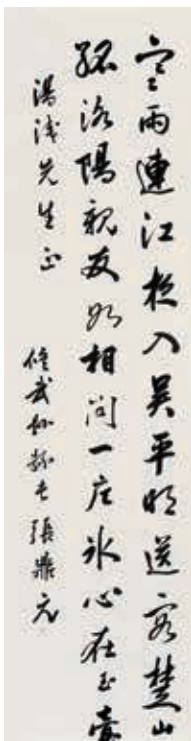 寒雨連江夜入吴平明送客楚山
孤洛陽親友如相問一片氷心在玉壺
湯浅先生正
修武 張鼎元